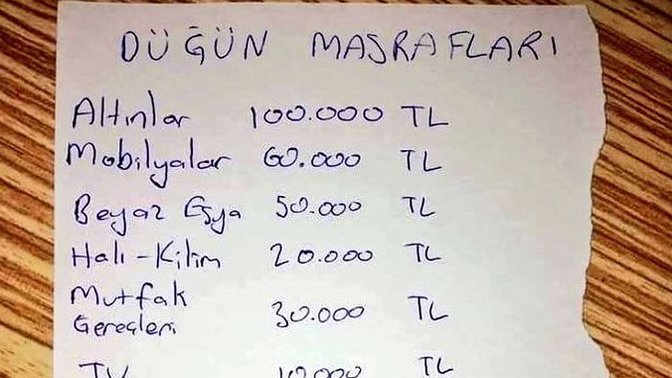 DÜĞÜN MASRAFLARI
Altınlar 100.000 TL
Mobilyalar 60.000 TL
Beyaz Eşya 50.000 TL
Halı-Kilim 20.000 TL
Mutfak
Gereçleri 30.000 TL
TV 10.000 TL